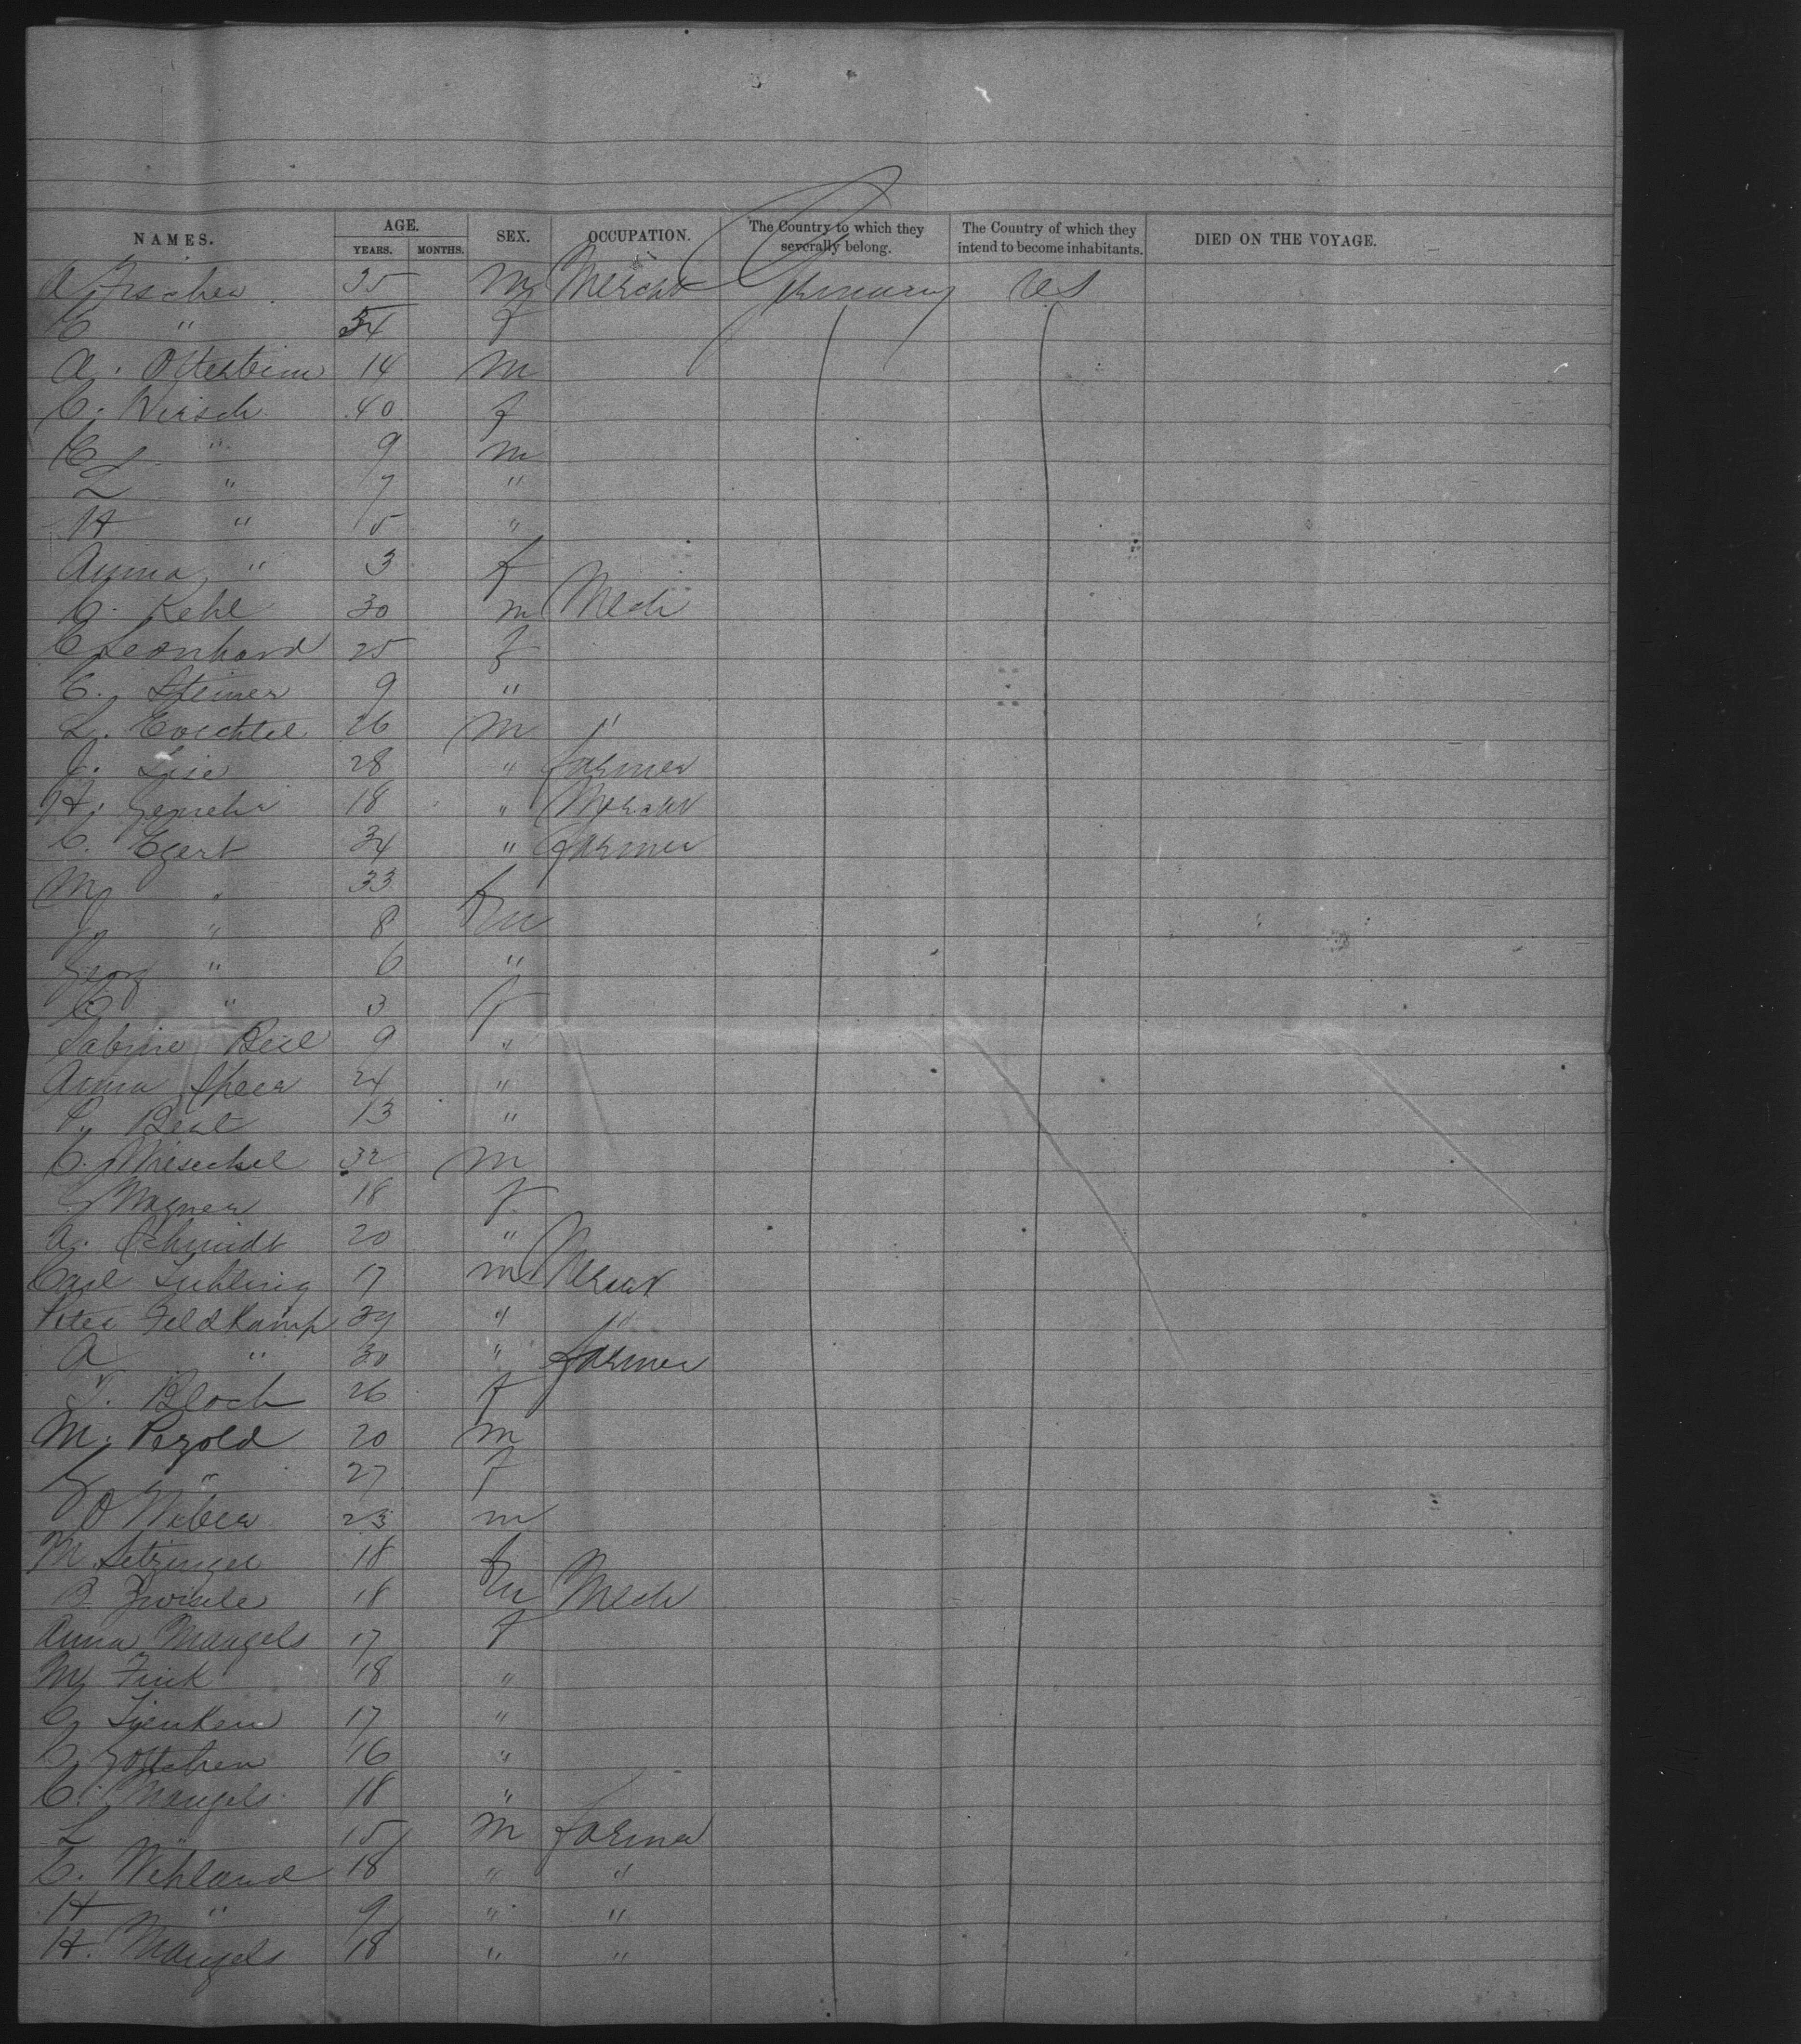 NAMES. AGE. SEX. OCCUPATION. The Country to which they severally belong. The Country of which they intend to become inhabitants. DIED ON THE VOYAGE.
YEARS. MONTHS.
A Fischer 35 m Merchт Germany US
C " 34 f
A. Otterbein 14 m
C. Hirsch 40 f
C " 9 m
L " 7 "
H " 5 "
Anna " 3 f
C. Kehl 30 m Mech
C Leonhard 25 f
C. Steiner 9 "
L. 26 m "
C. 28 " farmer
H. 18 " Merchт
C. Egert 34 " farmer
M " 33 f
" 8 m
Georg " 6 "
C " 3 f
Sabine Beil 9 "
Anna Speer 24 "
P. 13 "
C. 32 m
Wagner 18 f
A. Schmidt 20 "
Carl 17 m Merchт
Peter Feldkamp 39 " "
A " 30 " farmer
Bloch 26 f
M. Pezold 20 m
G " 27 f
O Weber 23 m
M 18 f
B. 18 m Mech
Anna Mangels 17 f
M Fink 18 "
C. Tienken 17 "
C. 16 "
C. Mangels 18 "
L " 15 m farmer
C. Wehland 18 " "
H " 9 " "
H. Mangels 18 " "